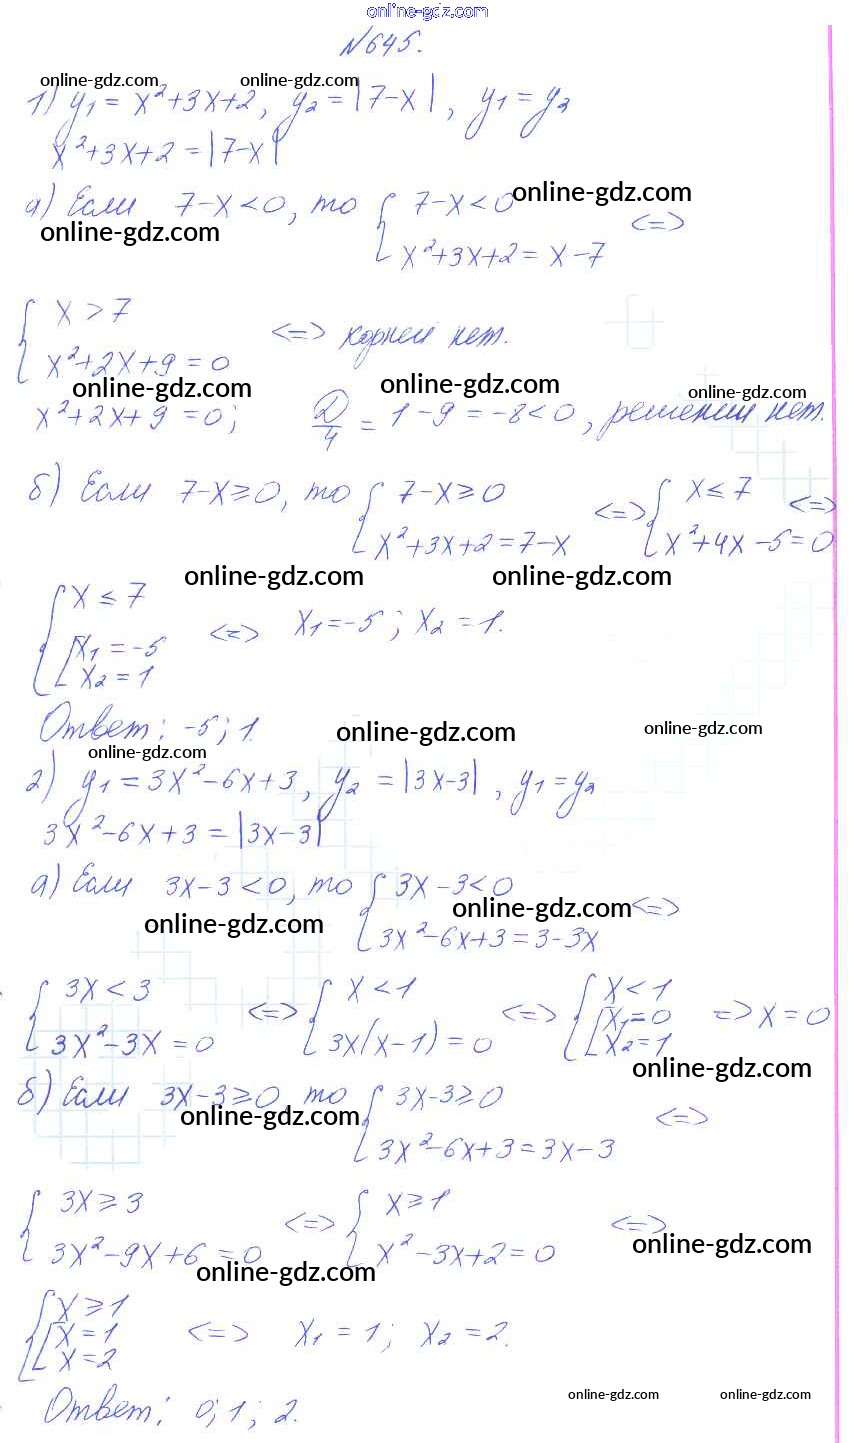 online-gdz.com
№645.
online-gdz.com online-gdz.com
1) y₁ = x²+3x+2, y₂ = |7-x|, y₁ = y₂
x²+3x+2 = |7-x|
а) Если 7-x<0, то { 7-x<0 online-gdz.com
online-gdz.com { x²+3x+2 = x-7 <=>
{ x > 7
{ x²+2x+9 = 0 <=> корней нет.
online-gdz.com online-gdz.com online-gdz.com
x²+2x+9=0; D/4 = 1-9 = -8<0, решений нет.
б) Если 7-x≥0, то { 7-x≥0 <=> { x≤7 <=>
{ x²+3x+2=7-x { x²+4x-5=0
online-gdz.com online-gdz.com
{ x ≤ 7
{ [ x₁=-5 <=> x₁=-5; x₂=1.
[ x₂=1
Ответ: -5; 1. online-gdz.com online-gdz.com
online-gdz.com
2) y₁ = 3x²-6x+3, y₂ = |3x-3|, y₁=y₂
3x²-6x+3 = |3x-3|
а) Если 3x-3<0, то { 3x-3<0 <=>
online-gdz.com online-gdz.com
{ 3x²-6x+3=3-3x
{ 3x<3 <=> { x<1 <=> { x<1 => x=0
{ 3x²-3x=0 { 3x(x-1)=0 { [ x₁=0
[ x₂=1
online-gdz.com
б) Если 3x-3≥0, то { 3x-3≥0 <=>
online-gdz.com
{ 3x²-6x+3=3x-3
{ 3x≥3 <=> { x≥1 <=>
{ 3x²-9x+6=0 { x²-3x+2=0 online-gdz.com
online-gdz.com
{ x≥1
{ [ x=1 <=> x₁=1; x₂=2.
[ x=2
Ответ: 0; 1; 2. online-gdz.com online-gdz.com